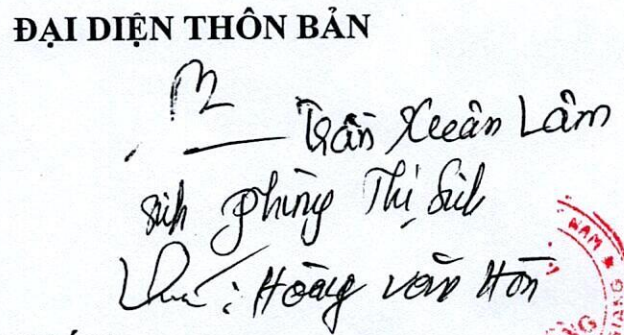 ĐẠI DIỆN THÔN BẢN
Trần Xuân Lâm
Sích Phùng Thị Sích
Hoàng Văn Hòn
NAM